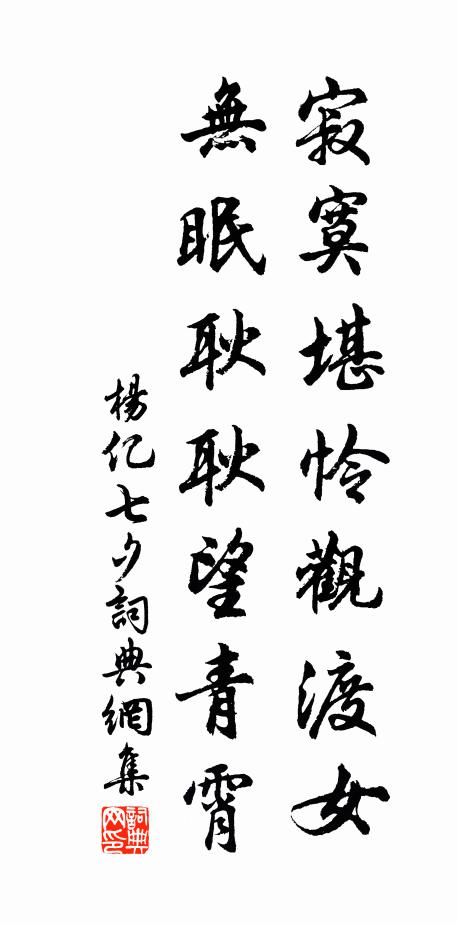 寂寞堪怜觀渡女
無眠耿耿望青霄
楊亿七夕詞典網集
詞典网印